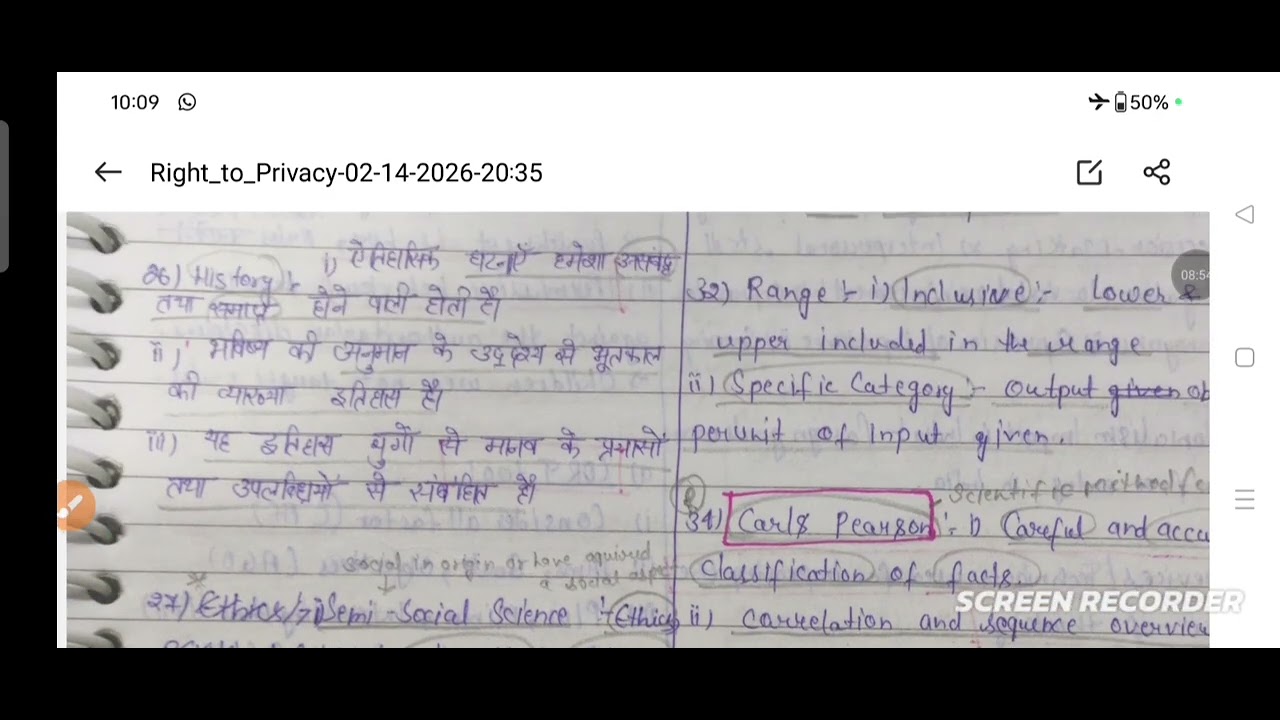 10:09
50%
Right_to_Privacy-02-14-2026-20:35
26) History :-
i) ऐतिहासिक घटनाएँ हमेशा
तथा समाप्त होने वाली होती हैं।
ii) भविष्य की अनुमान के उद्देश्य से भूतकाल
की व्याख्या इतिहास है।
iii) यह इतिहास युगों से मानव के प्रयासों
तथा उपलब्धियों से संबंधित है।
social in origin or have aquired
a social aspect
27) Ethics/ Semi-Social Science :- Ethics
32) Range :- i) Inclusive :- Lower &
upper included in the range
ii) Specific Category :- Output given of
per unit of Input given.
Scientific method
34) Carls Pearson :- i) Careful and accu
Classification of facts.
ii) correlation and sequence overview
08:54
SCREEN RECORDER